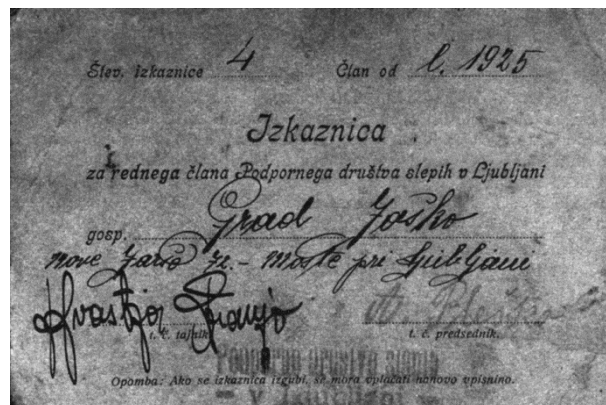 Štev. izkaznice 4 Član od l. 1925
Izkaznica
za rednega člana Podpornega društva slepih v Ljubljani
gosp. Grad Jaško
Nove Jarše - Moste pri Ljubljani
Hvastja Franjo
t. č. tajnik. t. č. predsednik.
Podporno društvo slepih
Opomba: Ako se izkaznica izgubi, se mora vplačati nanovo vpisnino.